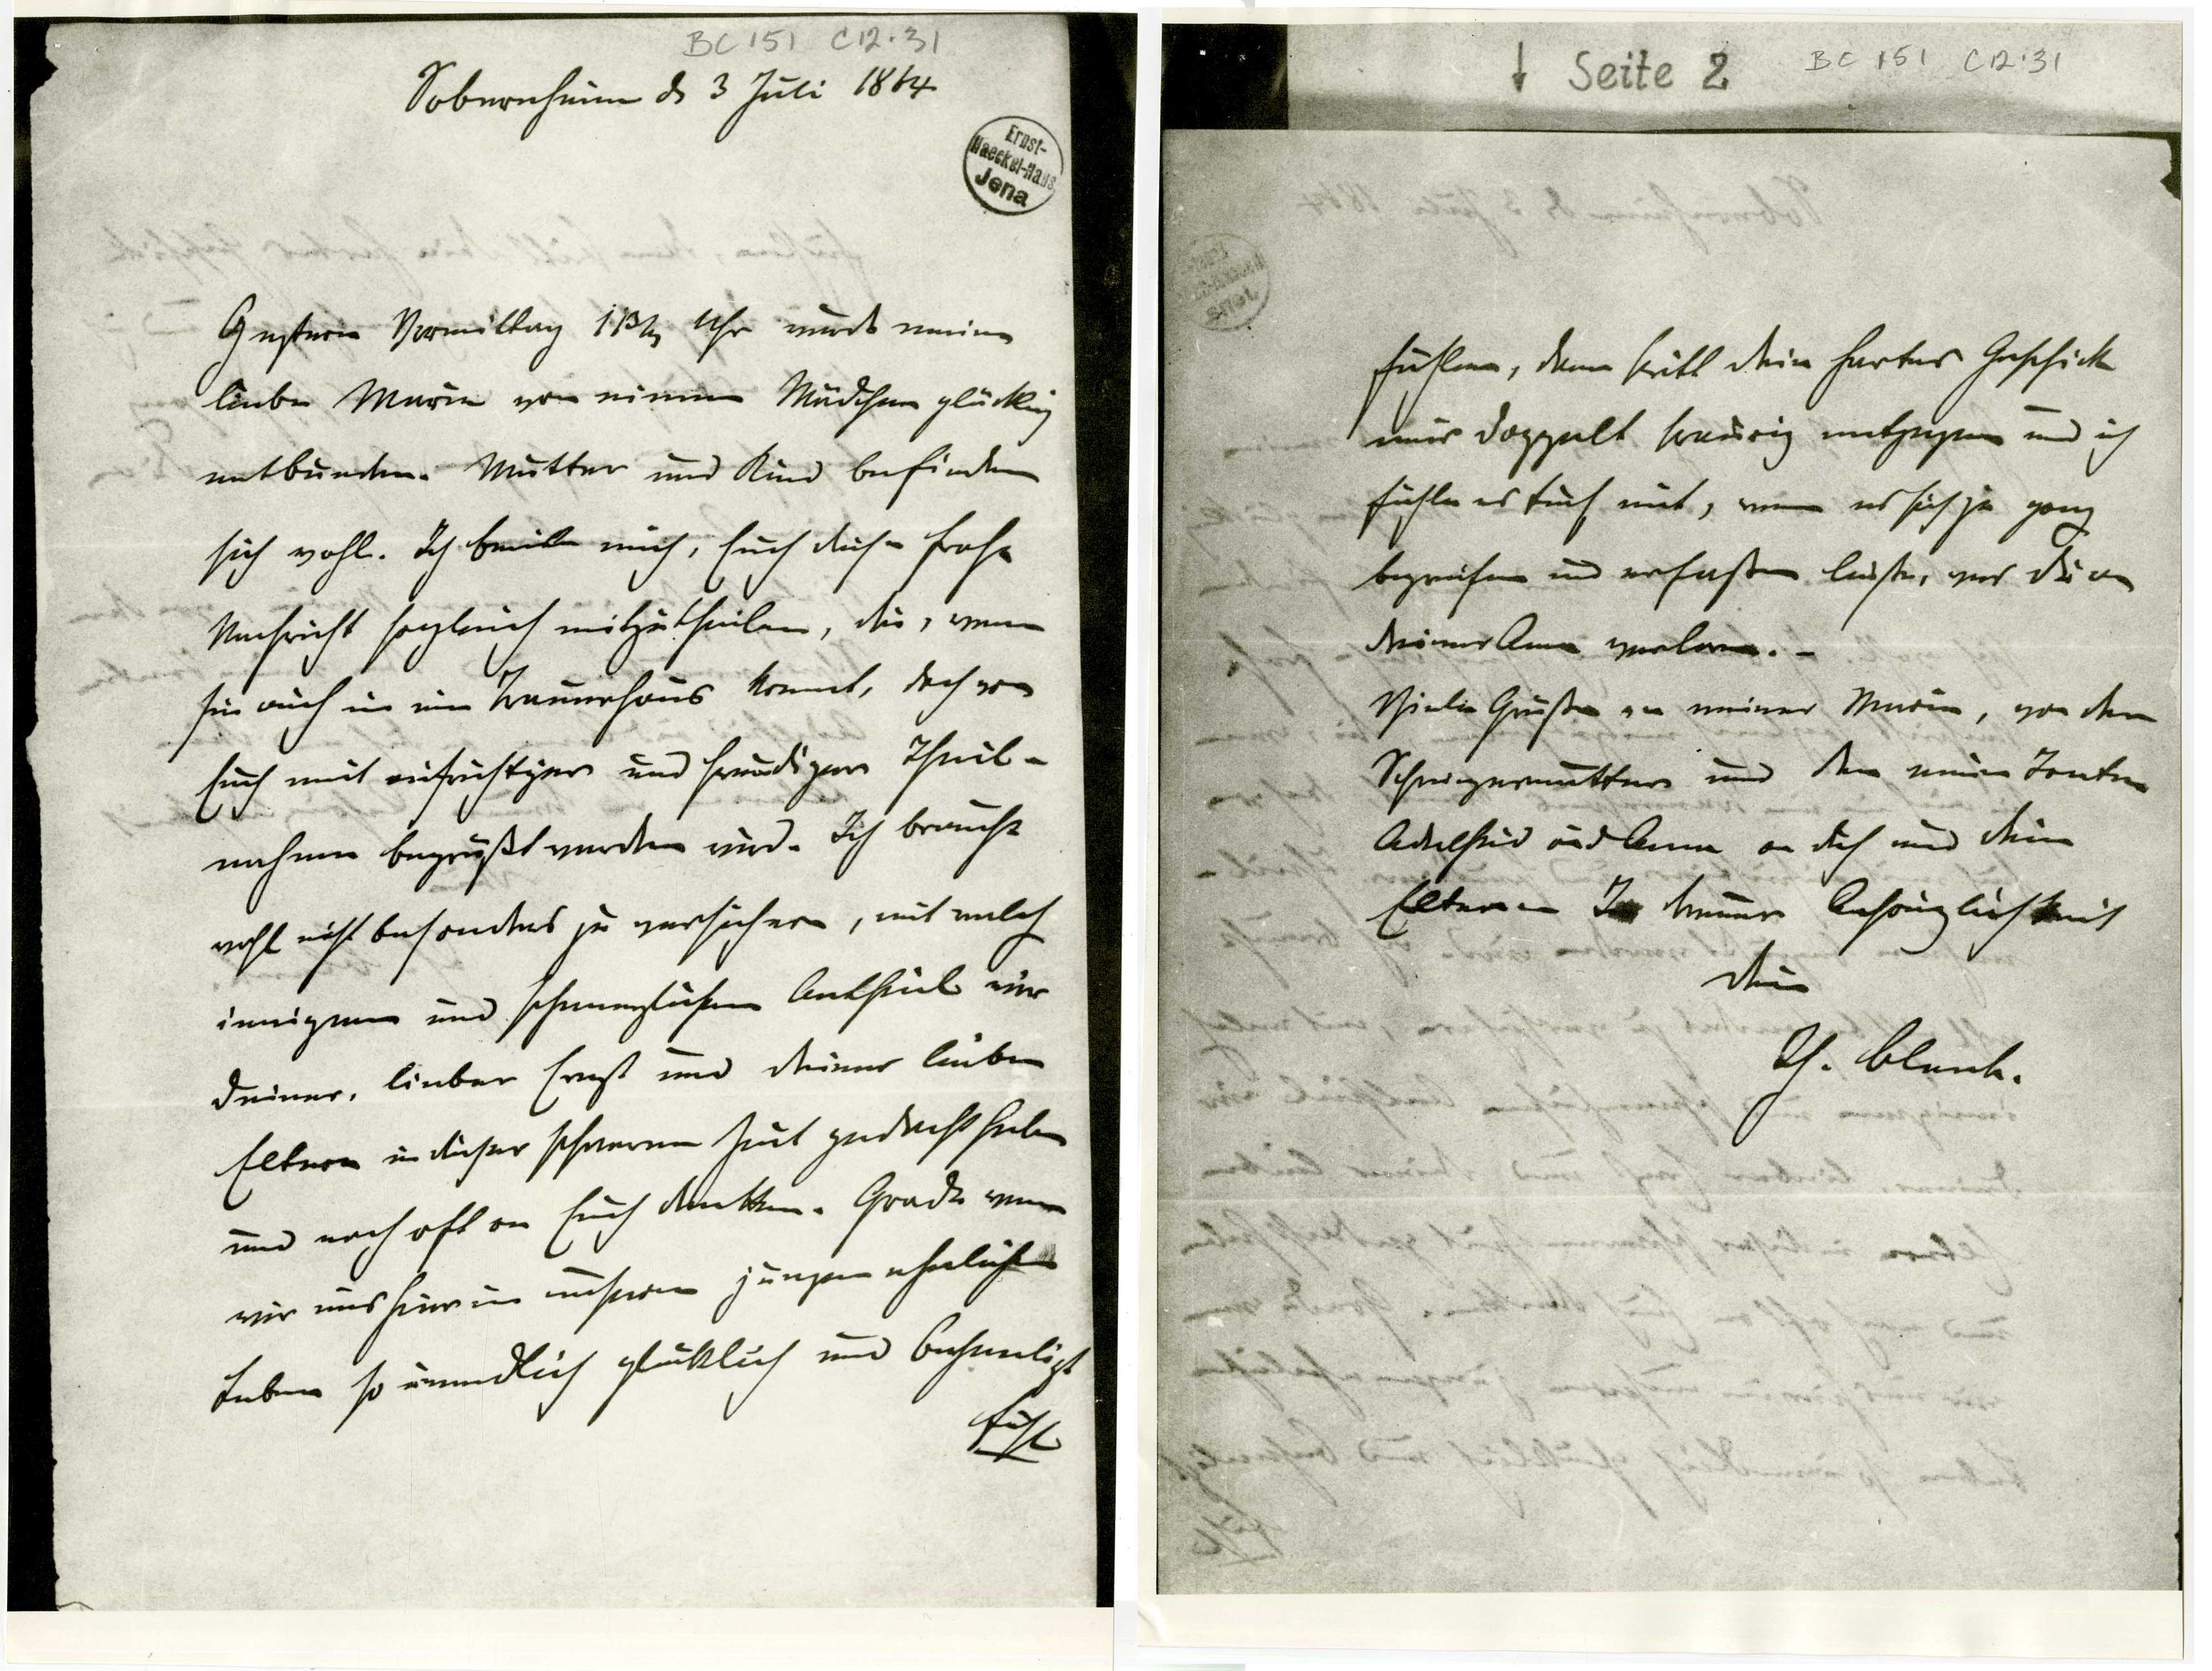 BC 151 C12.31
Sobernheim d 3 Juli 1864
Ernst-
Haeckel-Haus
Jena
Gestern Vormittag Uhr wurde meine
liebe Marie von einem Mädchen glücklich
entbunden. Mutter und Kind befinden
sich wohl. Ich beeile mich, Euch diese frohe
Nachricht sogleich mitzutheilen, die, wenn
sie auch in ein Trauerhaus kommt, doch von
Euch mit aufrichtiger und freudiger Theil-
nahme begrüßt werden wird. Ich brauche
wohl nicht besonders zu versichern, mit welch
innigem und schmerzlichem Antheil wir
Deiner, lieber Ernst und Deiner lieben
Eltern in dieser schweren Zeit gedacht haben
und noch oft an Euch denken. Grade wenn
wir uns hier in unserem jungen ehelichen
Leben so unendlich glücklich und beseeligt
fühl
↓ Seite 2 BC 151 C12.31
fühlen, dann tritt dein hartes Geschick
uns doppelt traurig entgegen und ich
fühle es tief mit, wenn es sich je ganz
begreifen und erfaßen ließe, was Du an
Deiner Anna verloren. –
Viele Grüße von meiner Marie, von der
Schwiegermutter und den neuen Tanten
Adelheid und Anna an dich und deine
Eltern In treuer Anhänglichkeit
dein
Th. Bleek.